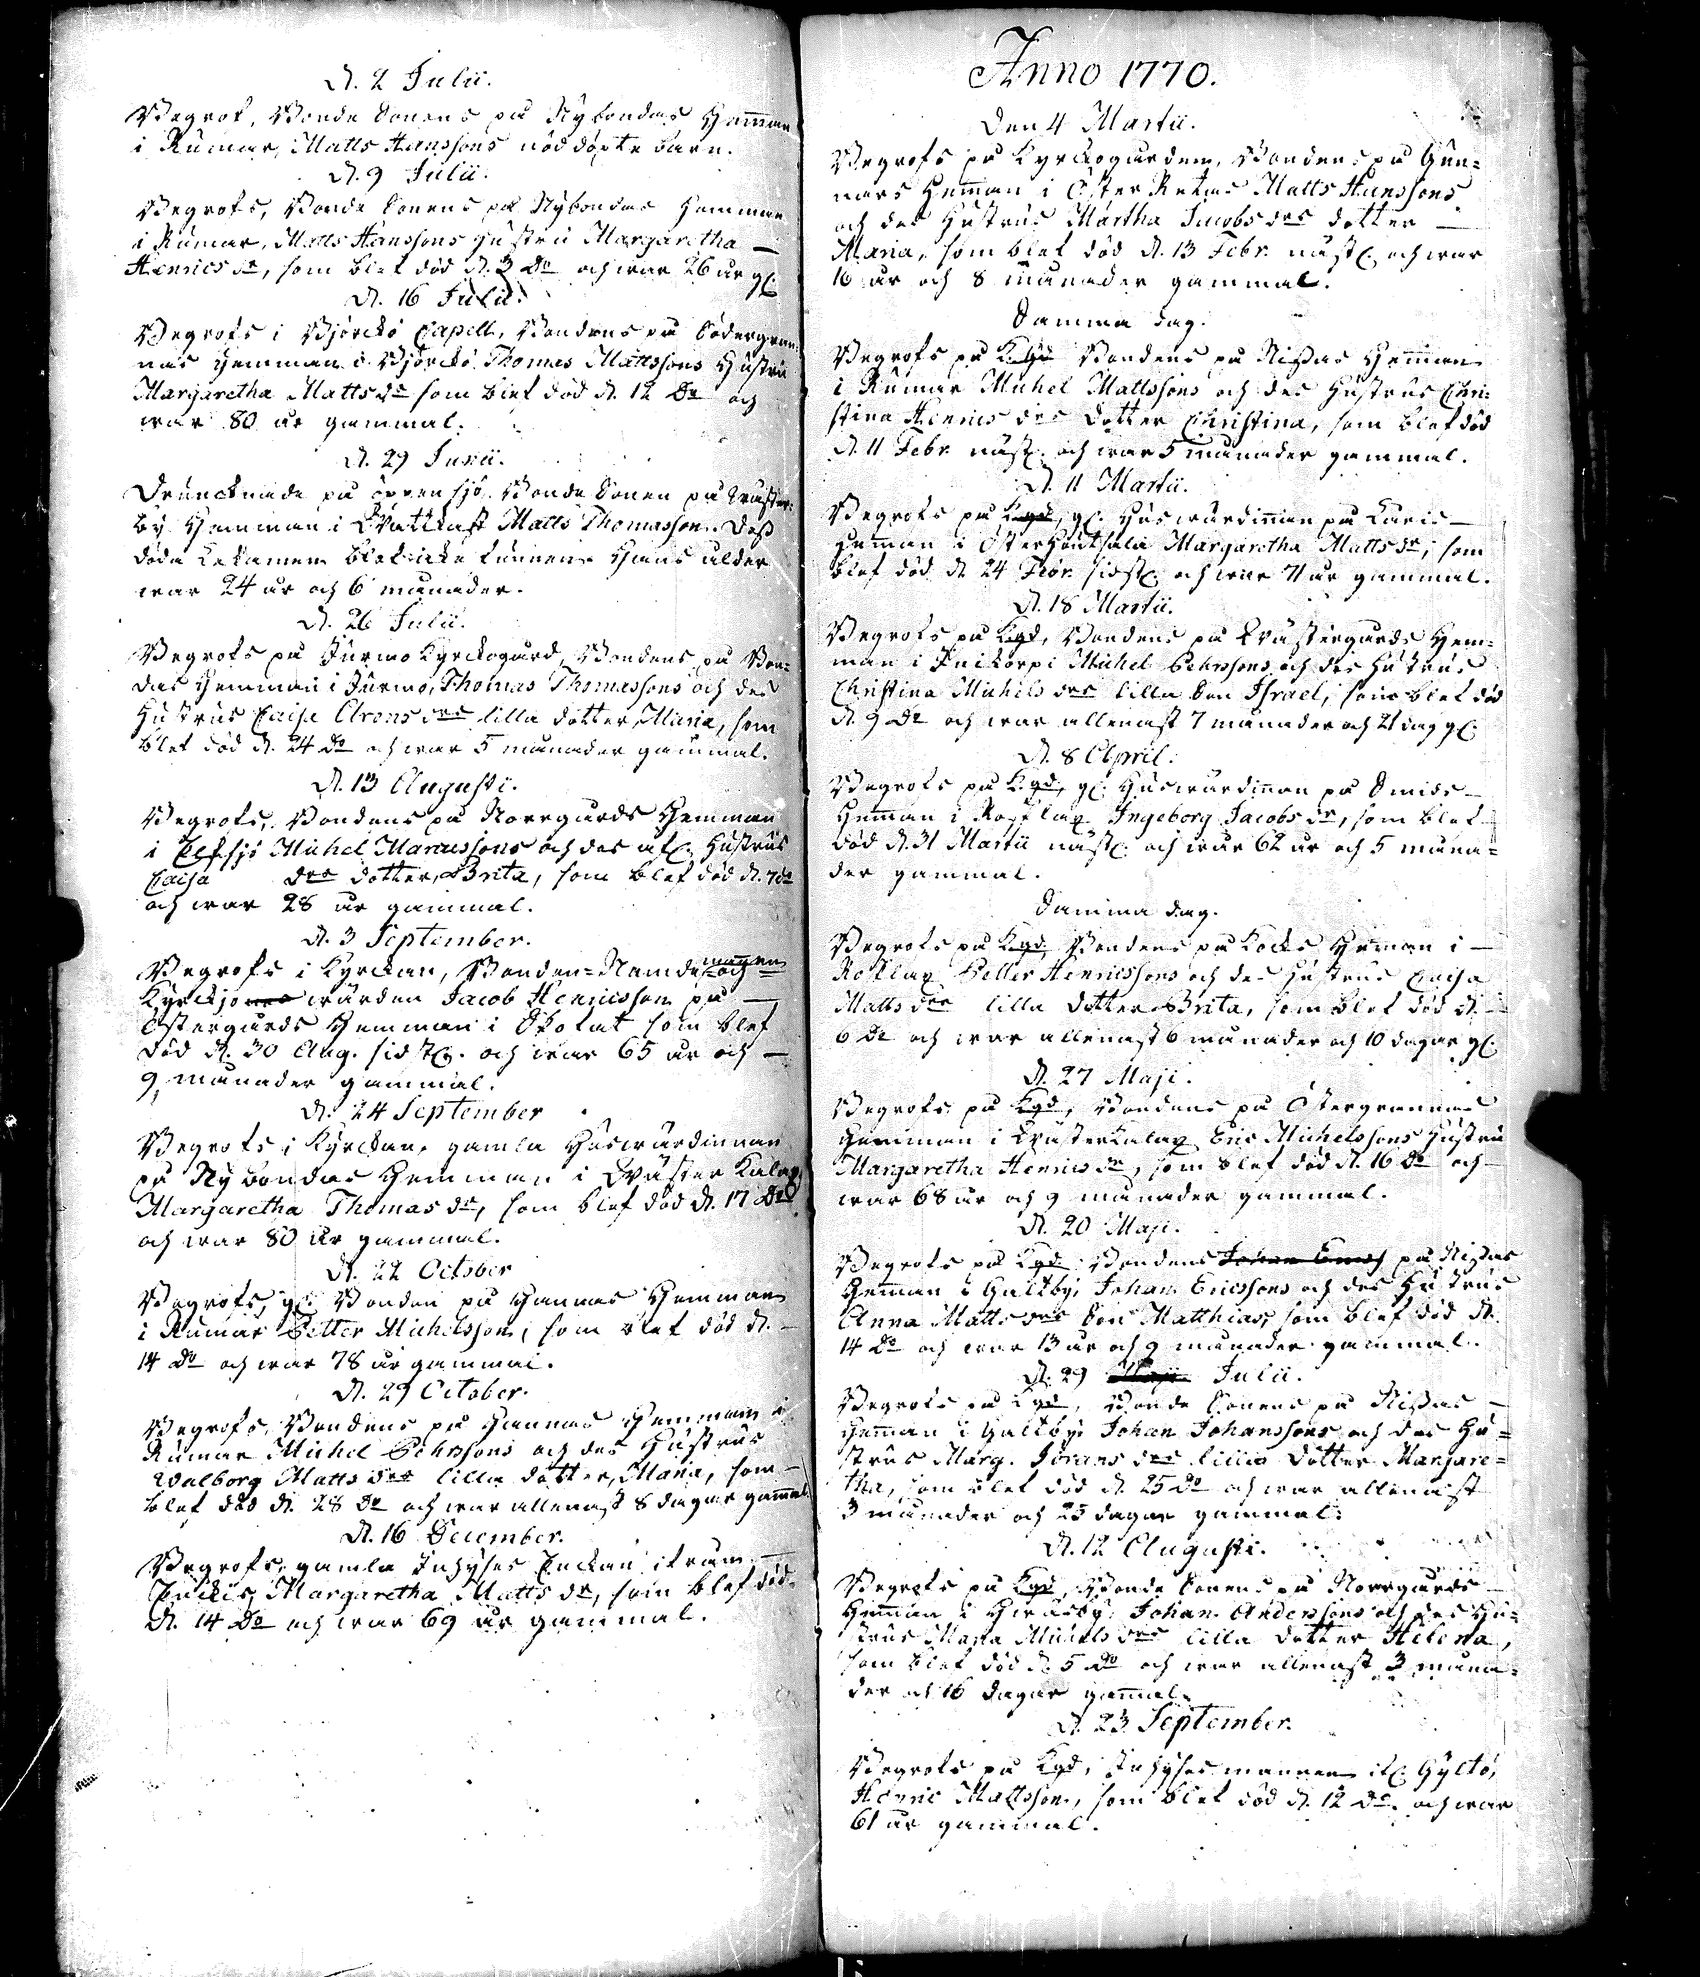 D. 2 Julii.
Begrof. Bonde Sonens på Nybondas Hemman
i Rumar, Matts Hanssons nöddöpte barn.
D. 9 Julii.
Begrofs, Bonde Sonens på Nybondas Hemman
i Rumar, Matts Hanssons Hustru Margaretha —
Henricsdr, som blef död d. 3 Do och war 26 år gl.
D. 16 Julii.
Begrofs i Björckö Capell, Bondens på Södergran-
nas Hemman i Björckö Thomas Mattssons Hustru
Margaretha Mattsdr som blef död d. 12 Do och
war 80 år gammal.
D. 29 Junii.
Druncknade på öppen sjö, Bonde Sonen på
by Hemman i Wattkast Matts Thomasson. Dess
döda Lekamen blef icke funnen. Hans ålder
war 24 år och 6 månader.
D. 26 Julii.
Begrofs på Jurmo Kyrckogård, Bondens på Bon-
das Hemman i Jurmo, Thomas Thomassons och des
Hustrus Caisa Arons drs lilla dotter Maria, som
blef död d. 24 Do och war 5 månader gammal.
D. 13 Augusti.
Begrofs, Bondens på Norrgårds Hemman
i Elfsjö Michel Marcussons och des afl. Hustrus
Caisa drs dotter, Brita, som blef död d. 7 do
och war 28 år gammal.
D. 3 September.
Begrofs i Kyrckan, Bonden-Nämdemannen och
Kyrckjo wärden Jacob Henricsson på —
Östergårds Hemman i som blef
död d. 30 Aug. sidstl. och war 65 år och —
9 månader gammal.
D. 24 September
Begrofs i Kyrckan, gamla Huswärdinnan
på Nybondas Hemman i Wäster Kalax
Margaretha Thomasdr, som blef död d. 17 Do
och war 80 år gammal.
D. 22 October
Begrofs, gl. Bonden på Hannas Hemman
i Rumar Petter Michelsson, som blef död d. —
14 Do och war 78 år gammal.
D. 29 October.
Begrofs, Bondens på Hannas Hemman i
Rumar Michel Pehrssons och des Hustrus
Walborg Matts drs lilla dotter, Maria, som —
blef död d. 28 Do och war allenast 8 dagar gammal
D. 16 December.
Begrofs, gamla Inhyses Enckan ifrån —
Margaretha Mattsdr, som blef död
D. 14 Do och war 69 år gammal.
Anno 1770.
Den 4 Martii.
Begrofs på Kyrckogården, Bondens på Gun-
nars Heman i Öster Retais Matts Hanssons
och des Hustrus Märtha Jacobs drs dotter —
Maria, som blef död d. 13 Febr. nästl. och war
16 år och 8 månader gammal.
Samma dag.
Begrofs på K.gd Bondens på Nissas Heman
i Rumar Michel Mattssons och des Hustrus Chri-
stina Henrics drs dotter Christina, som blef död
d. 11 Febr. nästl. och war 5 månader gammal.
D. 11 Martii.
Begrofs på K.gd, gl. Huswärdinnan på Laris —
Heman i Österhoutskala Margaretha Mattsdr, som
blef död d. 24 Febr. sidstl. och war 71 år gammal.
D. 18 Martii.
Begrofs på K.gd, Bondens på Wästergårds Hem-
man i Michel Pehrssons och des Hustrus
Christina Michels drs lilla Son Israel, som blef död
d. 9 Do och war allenast 7 månader och 21 dag gl.
D. 8 April.
Begrofs på K.gd, gl. Huswärdinnan på Smids —
Heman i Rosklax Ingeborg Jacobs dr, som blef
död d. 31 Martii nästl. och war 62 år och 5 måna-
der gammal.
Samma dag.
Begrofs på K.gd, Bondens på Kocks Heman i —
Rosklax Petter Henricssons och des Hustrus Caisa
Matts drs lilla dotter Brita, som blef död d. —
6 Do och war allenast 6 månader och 10 dagar gl.
D. 27 Maji.
Begrofs på K.gd, Bondens på Östergrannas
Hemman i Wästerkalax Eric Michelssons Hustru
Margaretha Henricsdr, som blef död d. 16 Do och
war 68 år och 9 månader gammal.
D. 20 Maji.
Begrofs på K.gd Bondens på Nissas
Heman i Haltby, Johan Ericssons och des Hustrus
Anna Matts drs Son Matthias, som blef död d.
14 Do och war 13 år och 9 månader gammal.
D. 29 Maji Julii.
Begrofs på K.gd, Bonde Sonens på Nissas —
Heman i Haltby, Johan Johanssons och des Hu-
strus Marg. Jörans drs lilla dotter Margare-
tha, som blef död d. 25 Do och war allenast
3 månader och 23 dagar gammal.
D. 12 Augusti.
Begrofs på K.gd, Bonde Sonens på Norrgårds —
Heman i Hwasby, Johan Anderssons och des Hu-
strus Maria Michels drs lilla dotter Helena,
som blef död d. 5 Do och war allenast 3 måna-
der och 16 dagar gammal.
D. 23 September.
Begrofs på K.gd, Inhyses mannen ifr. Gyltö,
Henric Mattsson, som blef död d. 12 Do. och war
61 år gammal.